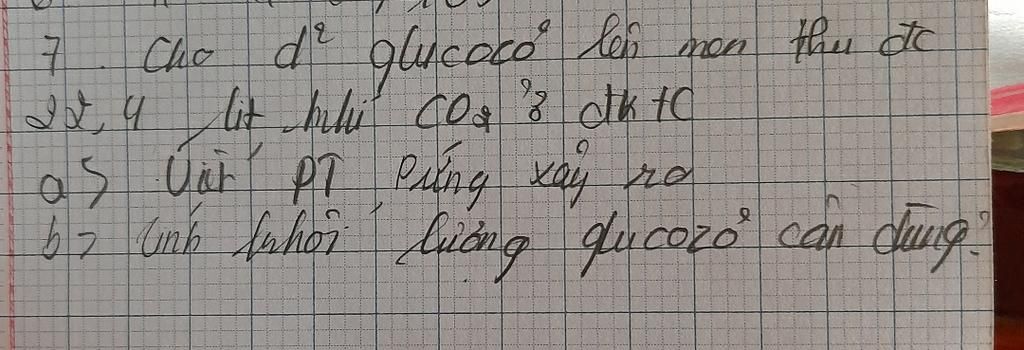 7. Cho d² glucocơ lên men thu đc
22,4 lít khí CO2 ở đktC
a) Viết PT Pứng xảy ra
b) tính khối lượng glucozơ cần dùng?